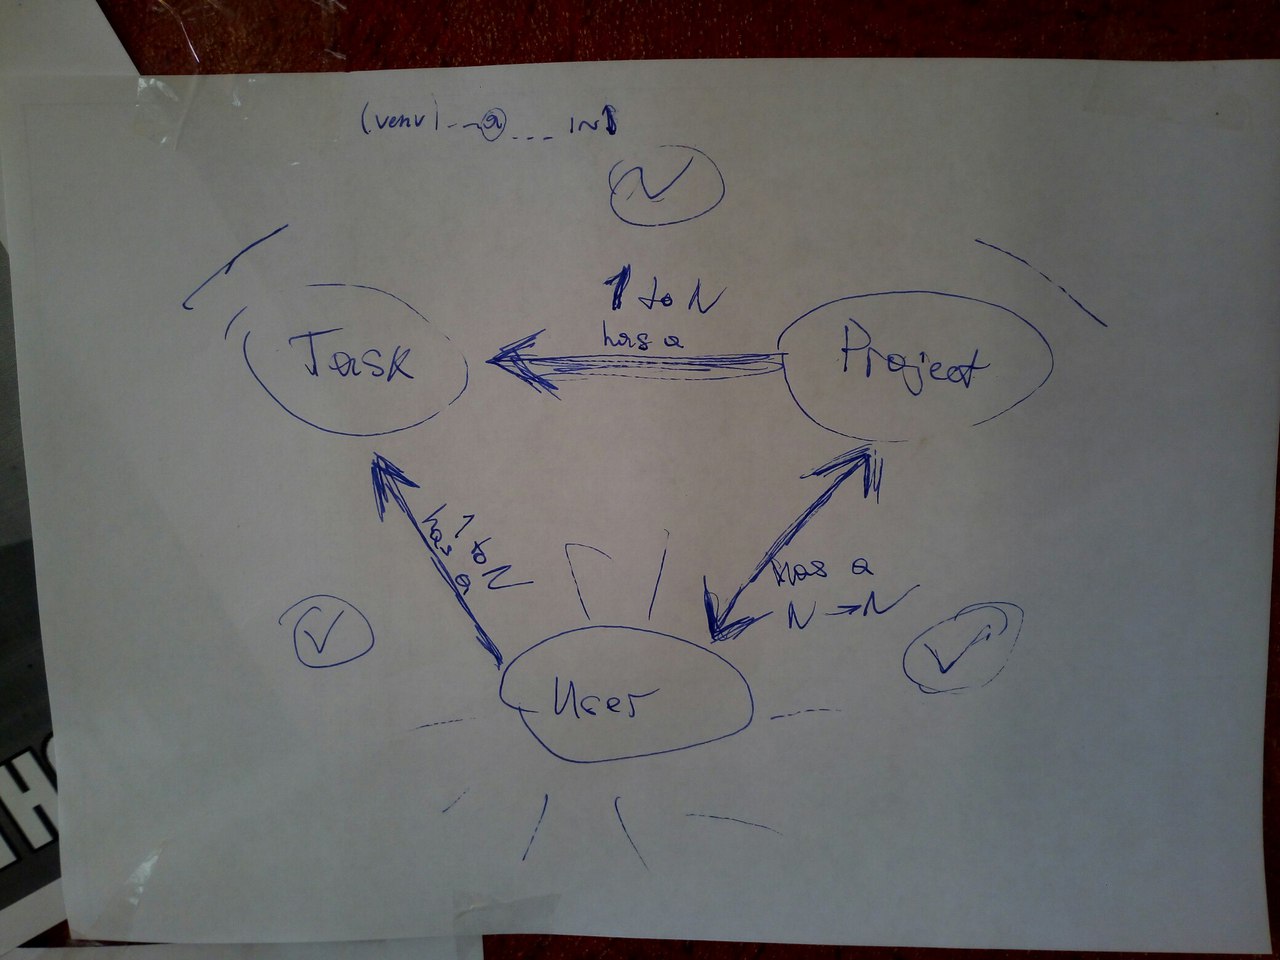 (venv) --@... in1
1 to N
has a
Task
Project
1 to N
has a
has a
N → N
User